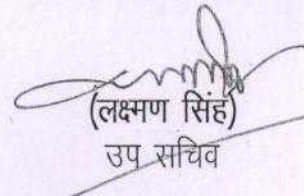 (लक्ष्मण सिंह)
उप सचिव